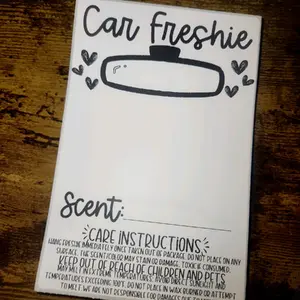 Car Freshie
Scent:
CARE INSTRUCTIONS
HANG FRESHIE IMMEDIATELY ONCE TAKEN OUT OF PACKAGE. DO NOT PLACE ON ANY
SURFACE. THE SCENT/COLOR MAY STAIN OR DAMAGE. TOXIC IF CONSUMED.
KEEP OUT OF REACH OF CHILDREN AND PETS.
MAY MELT IN EXTREME TEMPERATURES. AVOID DIRECT SUNLIGHT AND
TEMPERATURES EXCEEDING 100°. DO NOT PLACE IN WAX BURNER OR ATTEMPT
TO MELT. WE ARE NOT RESPONSIBLE FOR DAMAGES DUE TO